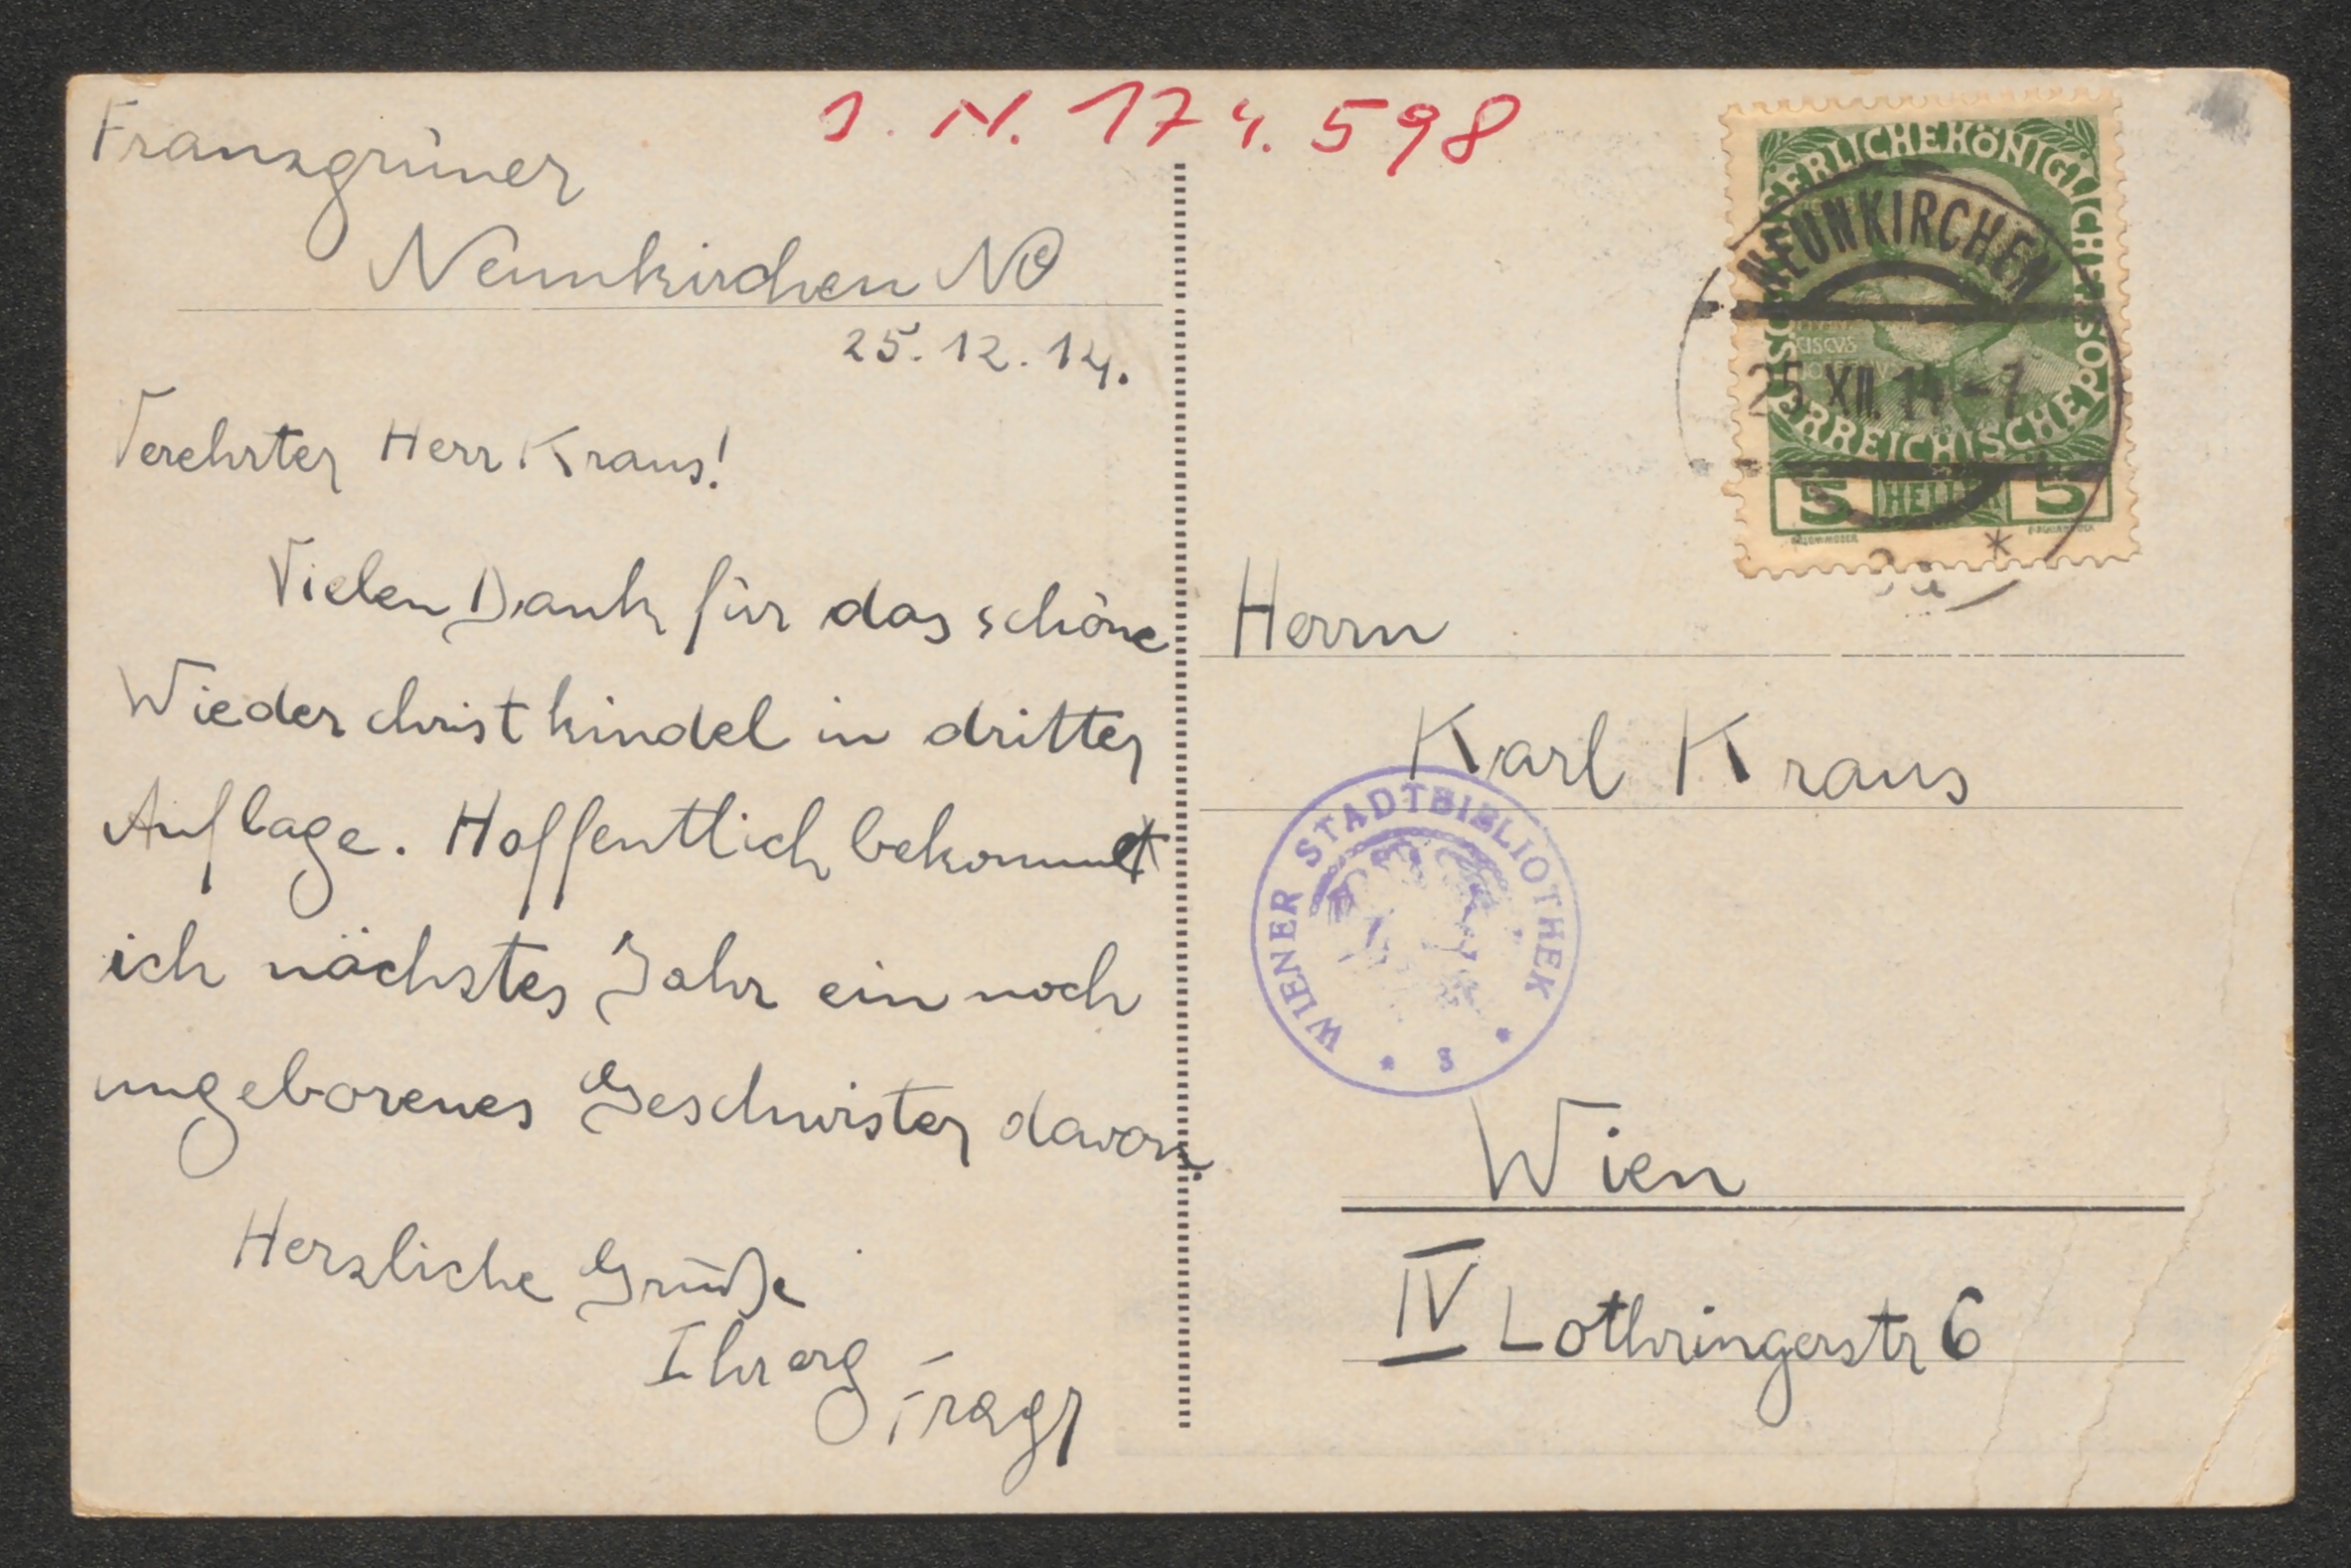 J. N. 174.598
Franzgrüner
Neunkirchen NÖ
25.12.14.
Verehrter Herr Kraus!
Vielen Dank für das schöne
Wiederchristkindel in dritter
Auflage. Hoffentlich bekomme
ich nächstes Jahr ein noch
ungeborenes Geschwister davon.
Herzliche Grüße
Ihr erg
NEUNKIRCHEN
25 XII. 14 - 7
5 HELLER 5
Herrn
Karl Kraus
WIENER STADTBIBLIOTHEK
* S *
Wien
IV Lothringerstr 6